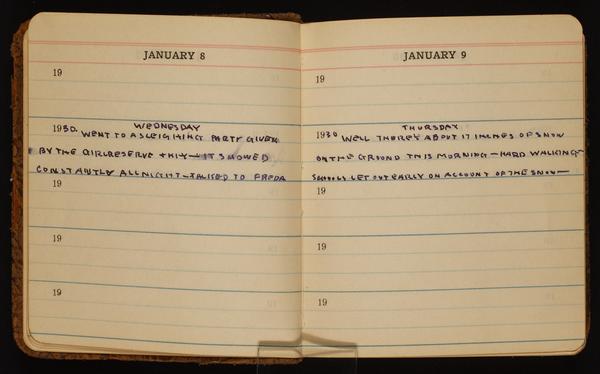 JANUARY 8
19
1930. WEDNESDAY
WENT TO A SLEIGHING PARTY GIVEN
BY THE GIRL RESERVE — IT SNOWED
CONSTANTLY ALL NIGHT — TALKED TO FREDA
19
19
19
JANUARY 9
19
1930 THURSDAY
WELL THERE'S ABOUT 17 INCHES OF SNOW
ON THE GROUND THIS MORNING — HARD WALKING —
SCHOOLS LET OUT EARLY ON ACCOUNT OF THE SNOW —
19
19
19